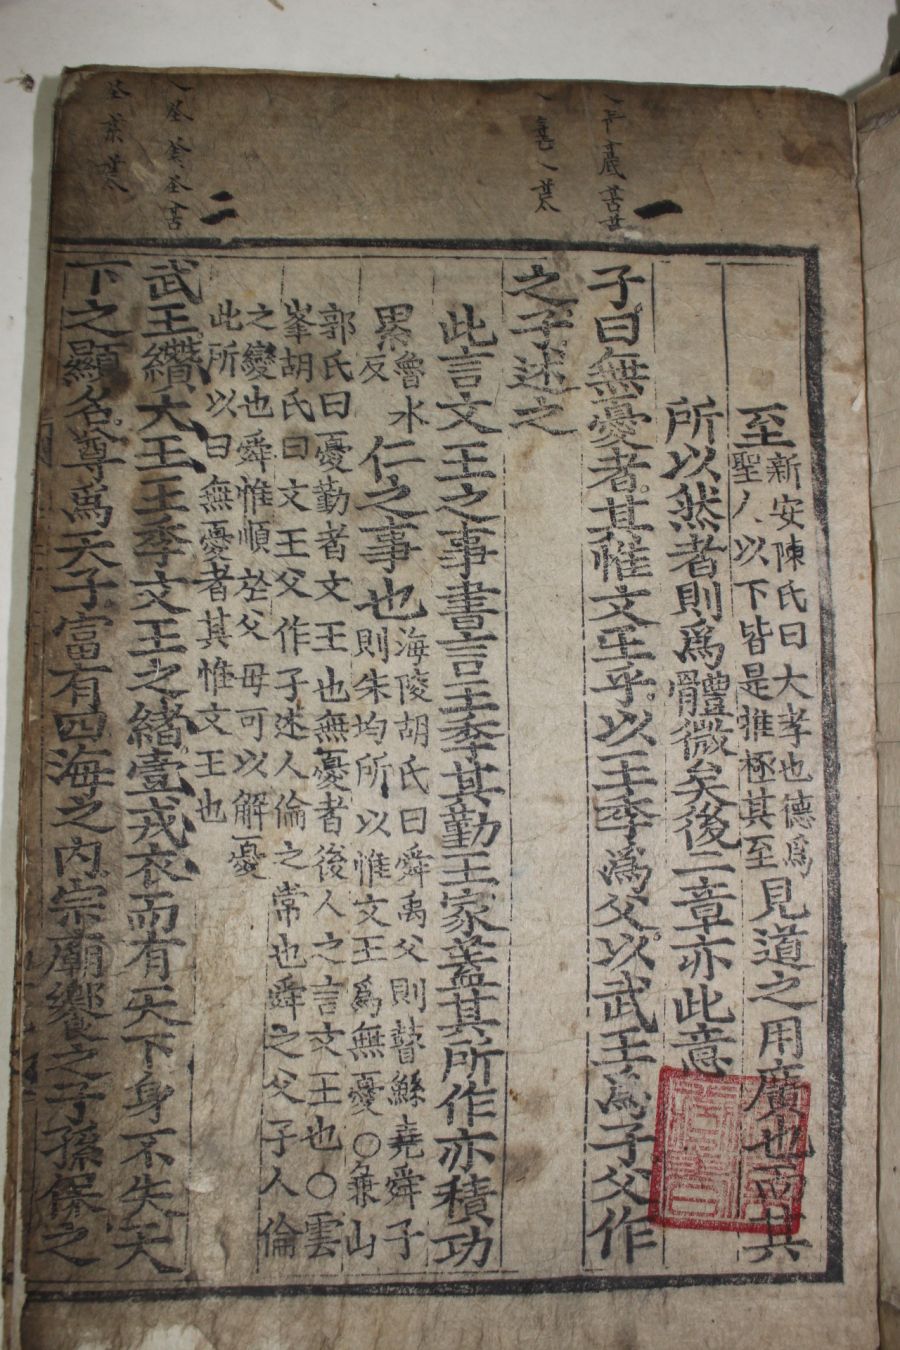 一
二
至新安陳氏曰大孝也德爲
聖人以下皆是推極其至見道之用廣也而其
所以然者則爲體微矣後二章亦此意
子曰無憂者其惟文王乎以王季爲父以武王爲子父作
之子述之
此言文王之事書言王季其勤王家盖其所作亦積功
累魯水
反仁之事也海陵胡氏曰舜禹父則瞽鯀堯舜子
則朱均所以惟文王爲無憂○兼山
郭氏曰憂勤者文王也無憂者後人之言文王也○雲
峯胡氏曰文王父作子述人倫之常也舜之父子人倫
之變也舜惟順於父母可以解憂
此所以曰無憂者其惟文王也
武王纘大王王季文王之緒壹戎衣而有天下身不失天
下之顯名尊爲天子富有四海之內宗廟饗之子孫保之